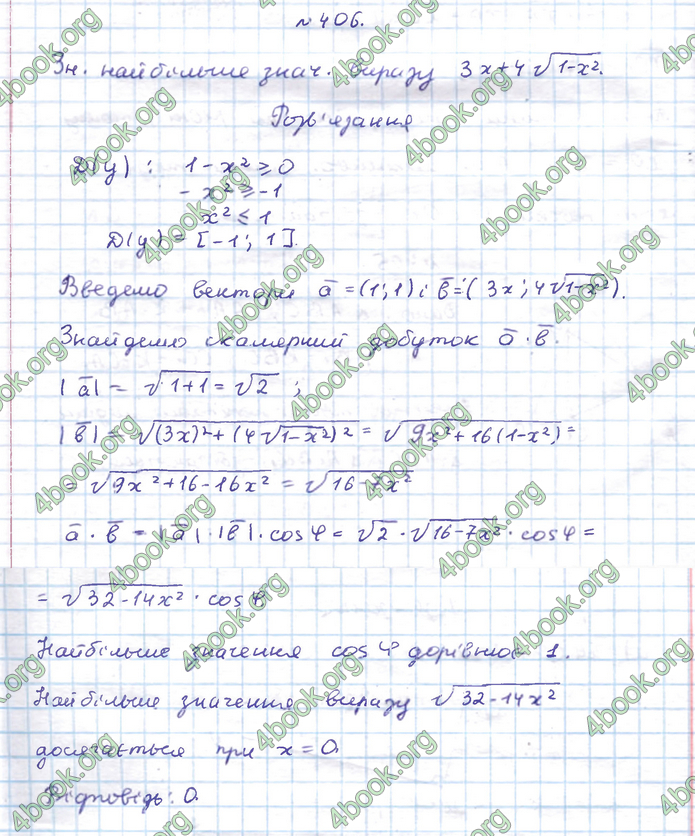 № 406.
Зн. найбільше знач. виразу 3x+4√(1-x²).
Розв'язання
D(y) : 1-x² ≥ 0
- x² ≥ -1
x² ≤ 1
D(y) = [-1; 1].
Введемо вектори ā = (1; 1) і b̄ = (3x; 4√(1-x²)).
Знайдемо скалярний добуток ā · b̄.
|ā| = √(1+1) = √2 ;
|b̄| = √((3x)²+(4√(1-x²))²) = √(9x²+16(1-x²)) =
= √(9x²+16-16x²) = √(16-7x²)
ā · b̄ = |ā| · |b̄| · cos φ = √2 · √(16-7x²) · cos φ =
= √(32-14x²) · cos φ
Найбільше значення cos φ дорівнює 1.
Найбільше значення виразу √(32-14x²)
досягається при x = 0.
Відповідь: 0.
4book.org